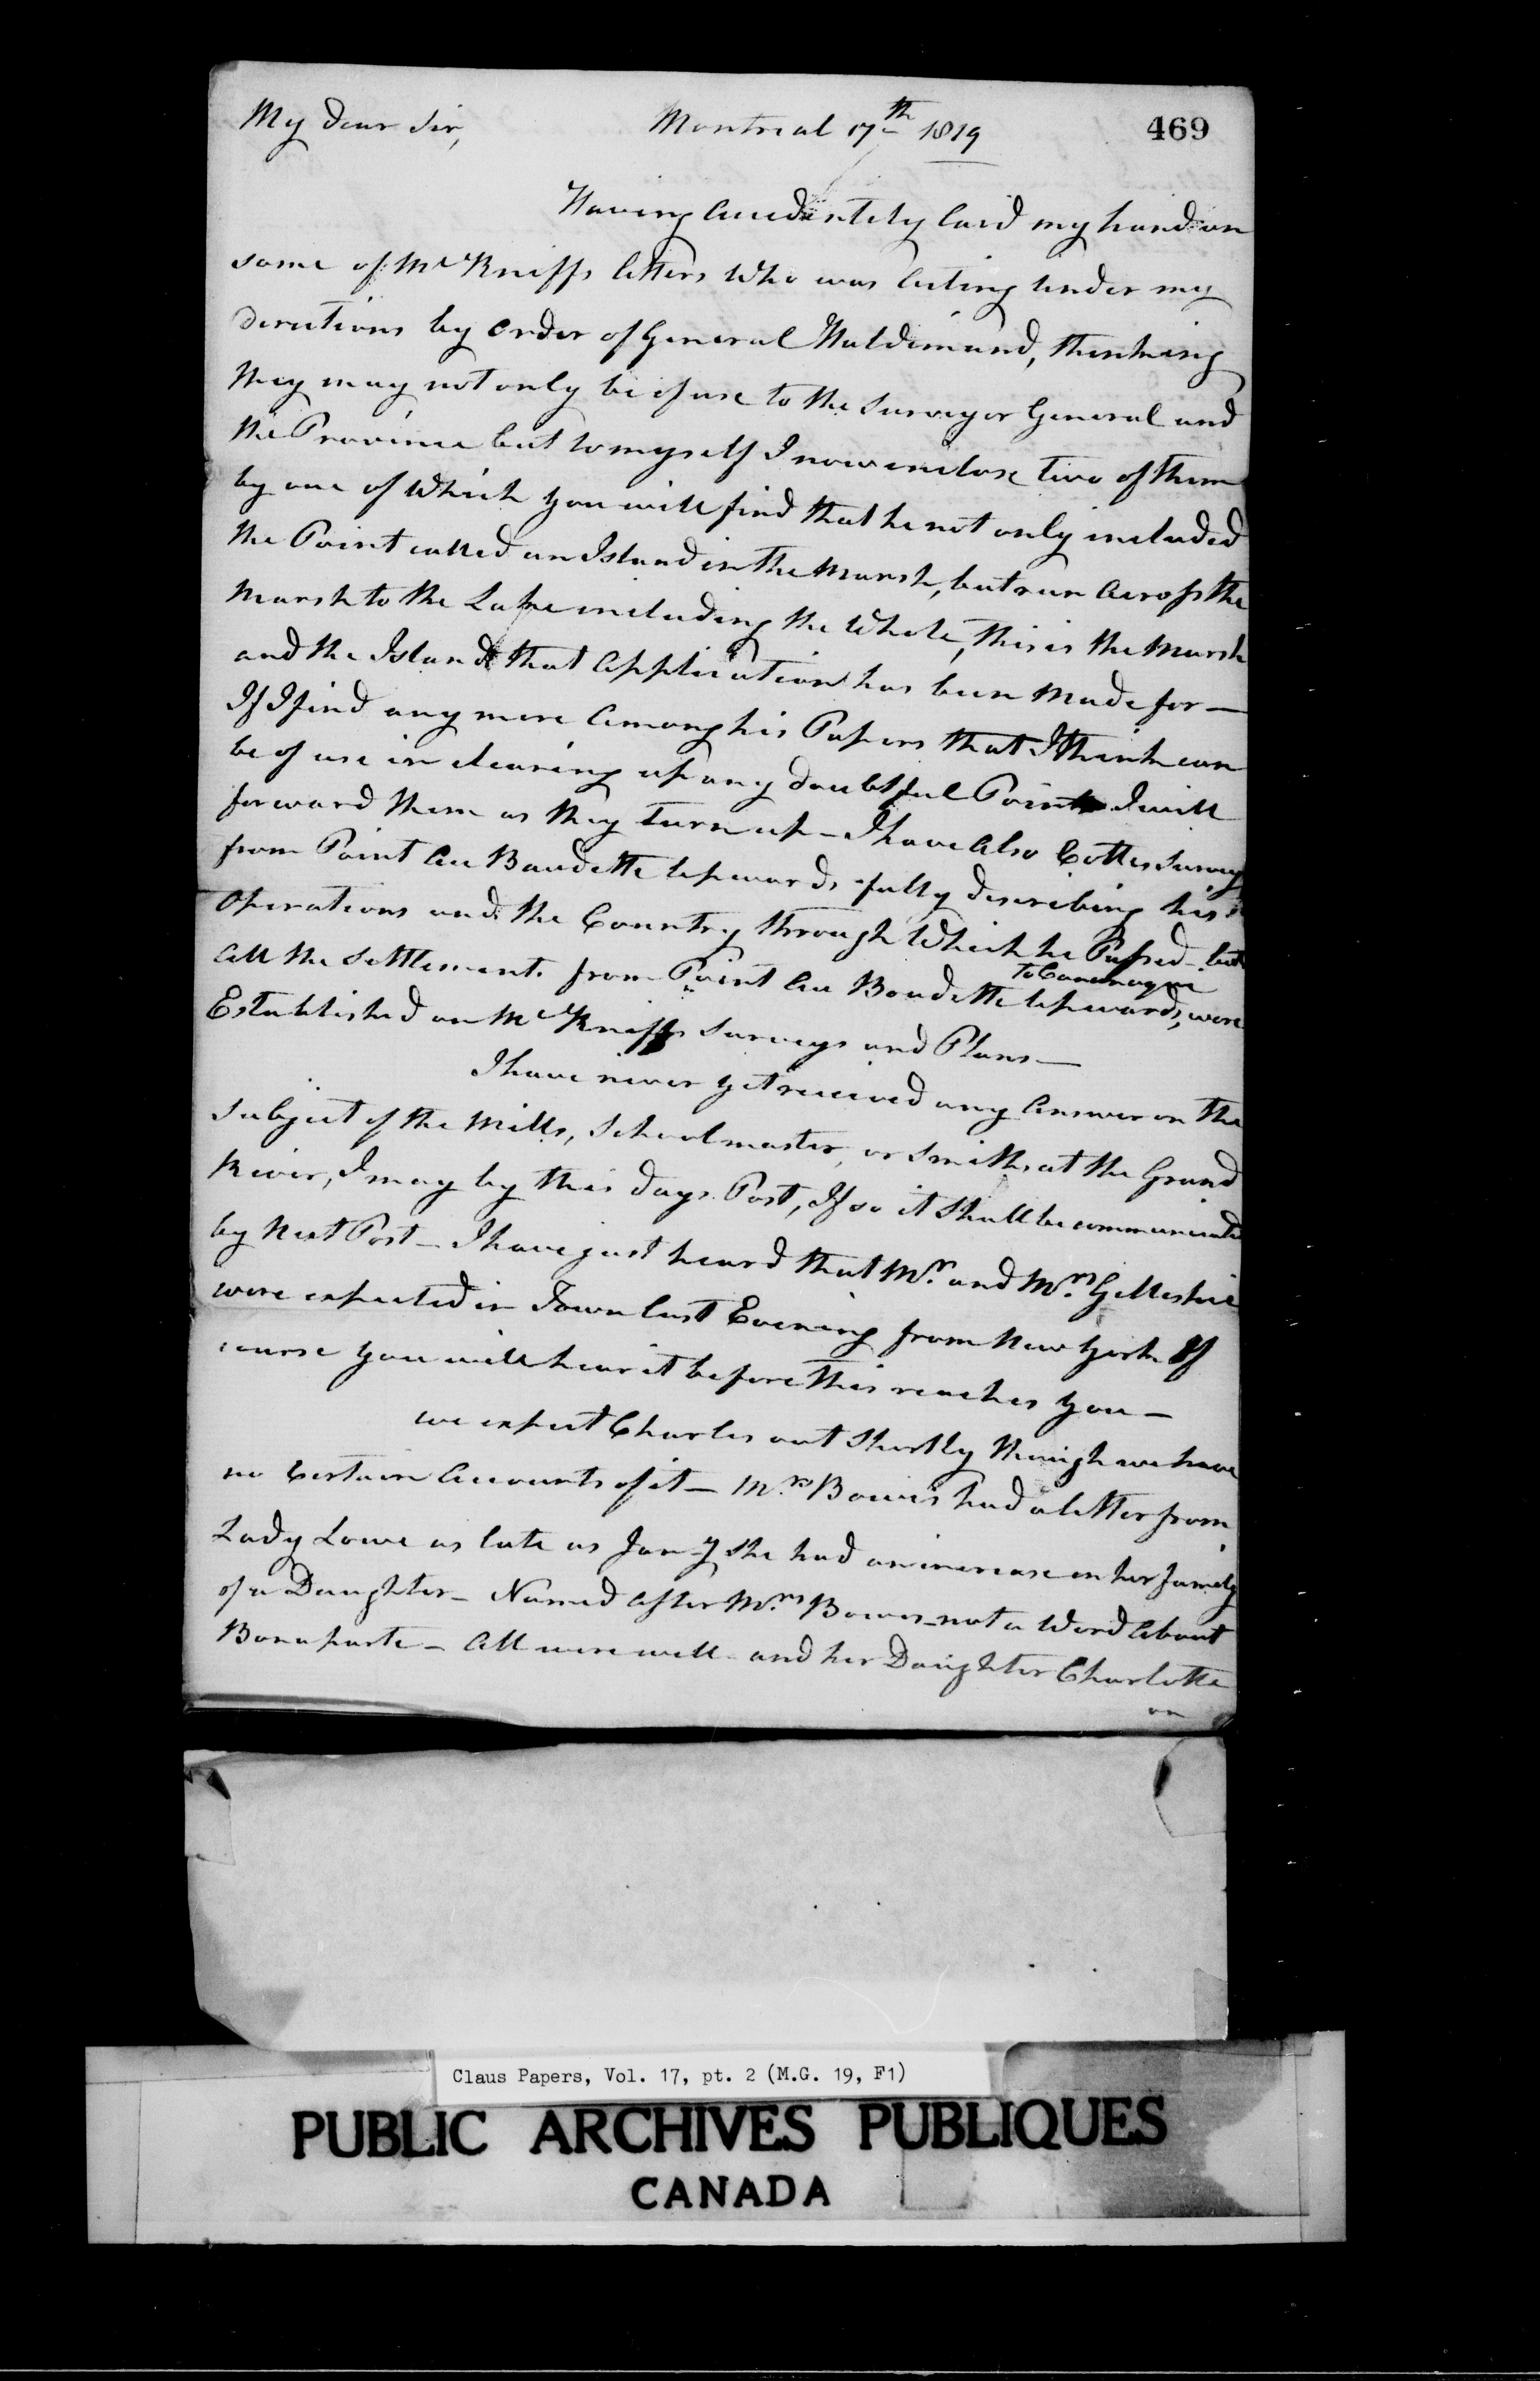 My dear Sir, Montreal 17th 1819 469
Having Accedentely laid my hand on
some of McKniffs letters Who was Acting Under my
directions by Order of General Haldimand, thinking
they may not only be of use to the Surveyor General and
the Province but to myself I now enclose two of them
by one of Which you will find that he not only included
the Point called an Island in the Marsh, but run Across the
Marsh to the Lake including the Whole, this is the Marsh
and the Island that Application has been Made for —
If I find any more Among his Papers that I think can
be of use in clearing up any doubtful Point I will
forward them as they turn up — I have Also Cottes Survey
from Point Au Baudette Upwards fully describing his
Operations and the Country through Which he Passed — but
to Cananoque
All the Settlements from Point Au Boudette Upwards, were
Established on McKniffs Surveys and Plans —
I have never yet received any Answer on the
Subject of the Mills, Schoolmaster, or Smiths at the Grand
River, I may by this days Post, If so it Shall be communicated
by Next Post — I have just heard that Mr. and Mrs. Gillespie
were expected in Town last Evening from New York Of
course you will hear it before this reaches you —
we expect Charles out Shortly though we have
no Certain Accounts of it — Mrs. Bowes had a letter from
Lady Lowe as late as Jany She had an increase in her family
of a Daughter — Named After Mrs. Bowes — not a Word About
Bonaparte — All were well and her Daughter Charlotte
on
Claus Papers, Vol. 17, pt. 2 (M.G. 19, F1)
PUBLIC ARCHIVES PUBLIQUES
CANADA